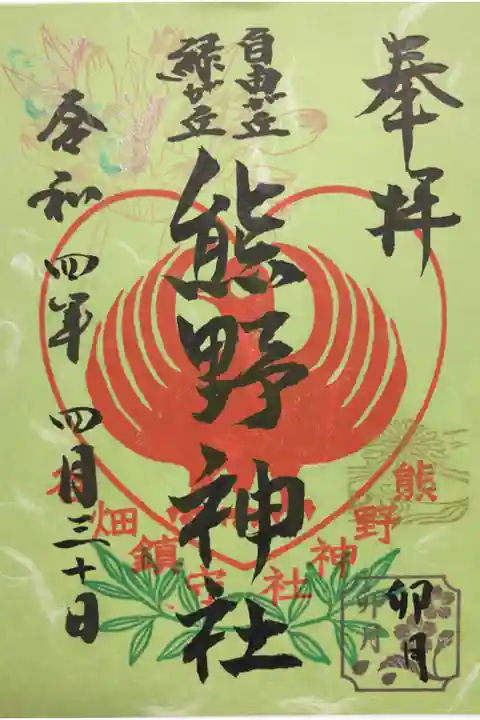 奉拝
自由が丘
緑が丘
熊野神社
令和四年四月三十日
熊野神社
谷畑鎮守
卯月
卯月